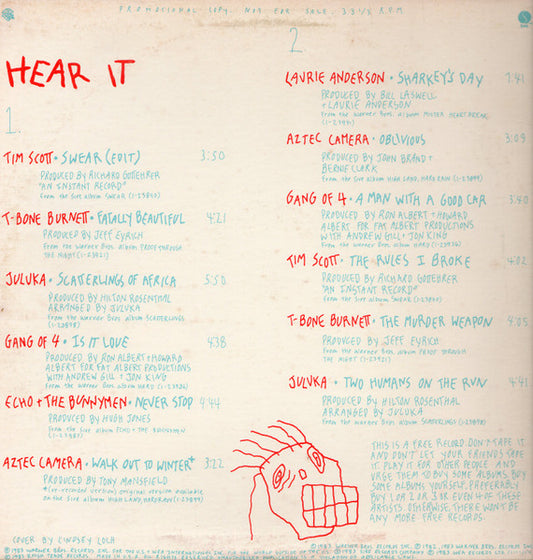 PROMOTIONAL COPY. NOT FOR SALE. 33 1/3 R.P.M.
HEAR IT
1.
TIM SCOTT • SWEAR (EDIT) 3:50
PRODUCED BY RICHARD GOTTEHRER
"AN INSTANT RECORD"
From the Sire album SWEAR
T-BONE BURNETT • FATALLY BEAUTIFUL 4:21
PRODUCED BY JEFF EYRICH
From the Warner Bros. album PROOF THROUGH
THE NIGHT (1-23921)
JULUKA • SCATTERLINGS OF AFRICA 5:50
PRODUCED BY HILTON ROSENTHAL
ARRANGED BY JULUKA
From the Warner Bros. album SCATTERLINGS
(1-23898)
GANG OF 4 • IS IT LOVE 4:38
PRODUCED BY RON ALBERT + HOWARD
ALBERT FOR FAT ALBERT PRODUCTIONS
WITH ANDREW GILL + JON KING
From the Warner Bros. album HARD (1-23936)
ECHO + THE BUNNYMEN • NEVER STOP 4:44
PRODUCED BY HUGH JONES
From the Sire album ECHO + THE BUNNYMEN
AZTEC CAMERA • WALK OUT TO WINTER* 3:22
PRODUCED BY TONY MANSFIELD
*(re-recorded version) original version available
on the Sire album HIGH LAND, HARD RAIN
COVER BY LINDSEY LOCH
2
LAURIE ANDERSON • SHARKEY'S DAY 7:41
PRODUCED BY BILL LASWELL
+ LAURIE ANDERSON
From the Warner Bros. album MISTER HEARTBREAK
AZTEC CAMERA • OBLIVIOUS 3:09
PRODUCED BY JOHN BRAND +
BERNIE CLARK
From the Sire album HIGH LAND, HARD RAIN
GANG OF 4 • A MAN WITH A GOOD CAR 3:40
PRODUCED BY RON ALBERT + HOWARD
ALBERT FOR FAT ALBERT PRODUCTIONS
WITH ANDREW GILL + JON KING
From the Warner Bros. album HARD (1-23936)
TIM SCOTT • THE RULES I BROKE 4:02
PRODUCED BY RICHARD GOTTEHRER
"AN INSTANT RECORD"
From the Sire album SWEAR
T-BONE BURNETT • THE MURDER WEAPON 4:05
PRODUCED BY JEFF EYRICH
From the Warner Bros. album PROOF THROUGH
THE NIGHT (1-23921)
JULUKA • TWO HUMANS ON THE RUN 4:41
PRODUCED BY HILTON ROSENTHAL
ARRANGED BY JULUKA
From the Warner Bros. album SCATTERLINGS (1-23898)
THIS IS A FREE RECORD. DON'T TAPE IT.
AND DON'T LET YOUR FRIENDS TAPE
IT. PLAY IT FOR OTHER PEOPLE AND
URGE THEM TO BUY SOME ALBUMS. BUY
SOME ALBUMS YOURSELF, PREFERABLY
BUY 1 OR 2 OR 3 OR EVEN 4 OF THESE
ARTISTS. OTHERWISE, THERE WON'T BE
ANY MORE FREE RECORDS.